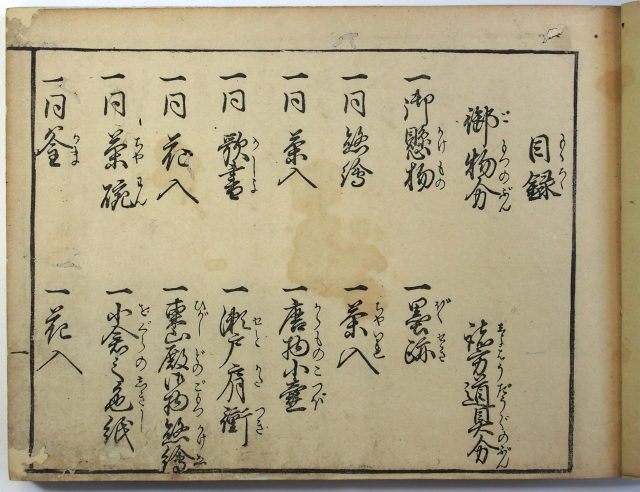 目録
御物分　諸方道具分
一御懸物　一墨跡
一同懸繪　一茶入
一同茶入　一唐物小壷
一同歌書　一瀬戸肩衝
一同花入　一東山殿御物懸繪
一同茶碗　一小倉之色紙
一同釜　一花入